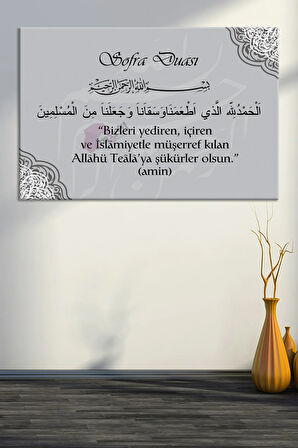 Sofra Duası
بِسْمِ اللهِ الرَّحْمٰنِ الرَّحِيمِ
اَلْحَمْدُ لِلّٰهِ الَّذِي اَطْعَمَنَاوَسَقَانَا وَجَعَلَنَا مِنَ الْمُسْلِمِينَ
“Bizleri yediren, içiren
ve İslamiyetle müşerref kılan
Allahü Teâla’ya şükürler olsun.”
(amin)